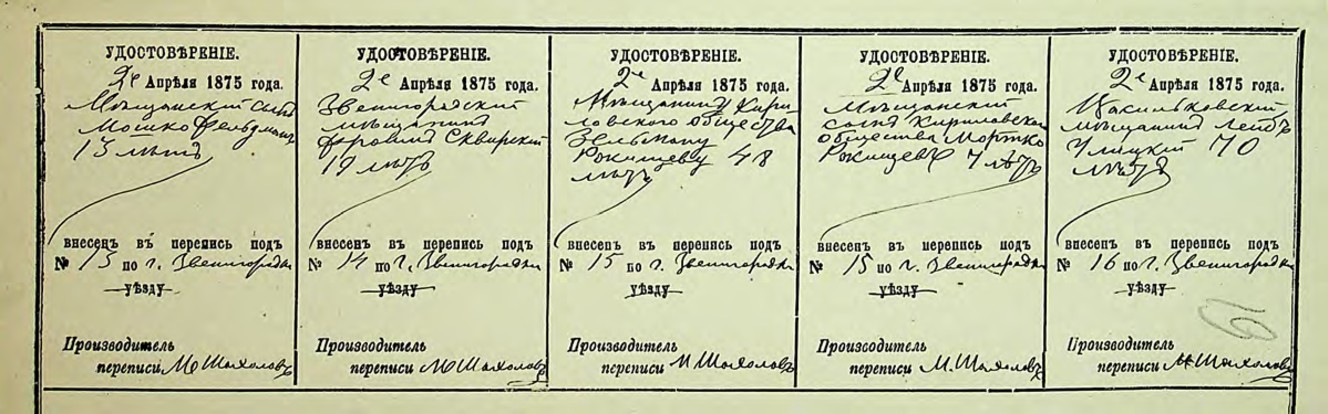 УДОСТОВѢРЕНІЕ.
2го Апрѣля 1875 года.
Мѣщанскій сынъ
Мошко Фельдманъ
13 лѣтъ
внесенъ въ перепись подъ
№ 13 по г. Звенигородкѣ
уѣзду
Производитель
переписи
УДОСТОВѢРЕНІЕ.
2е Апрѣля 1875 года.
Звенигородскій
мѣщанинъ
Сквирскій
19 лѣтъ
внесенъ въ перепись подъ
№ 14 по г. Звенигородкѣ
уѣзду
Производитель
переписи
УДОСТОВѢРЕНІЕ.
2е Апрѣля 1875 года.
Мѣщанину Кири
ловского общества
Зельману
48
лѣтъ
внесенъ въ перепись подъ
№ 15 по г. Звенигородкѣ
уѣзду
Производитель
переписи
УДОСТОВѢРЕНІЕ.
2е Апрѣля 1875 года.
Мѣщанскій
сынъ Кириловскаго
общества Мортко
7 лѣтъ
внесенъ въ перепись подъ
№ 15 по г. Звенигородкѣ
уѣзду
Производитель
переписи
УДОСТОВѢРЕНІЕ.
2е Апрѣля 1875 года.
Васильковскій
мѣщанинъ Лейбъ
Улицкій 70
лѣтъ
внесенъ въ перепись подъ
№ 16 по г. Звенигородкѣ
уѣзду
Производитель
переписи